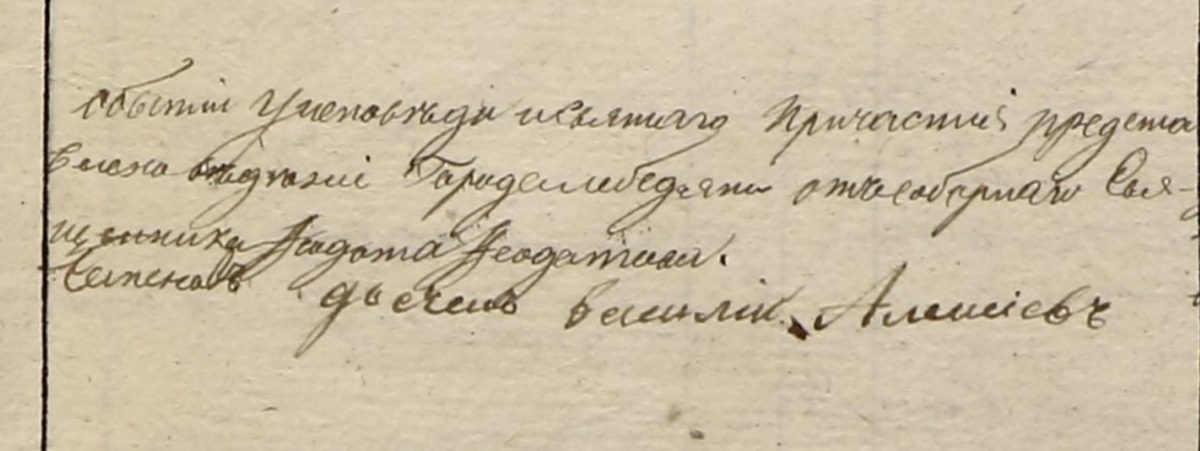 обытіи уисповѣди исвятаго Причастия предста
влено Города лебедяни отъсоборнаго Свя-
щенника Феодота Феодотова.
дьячекъ василій Алексіевъ